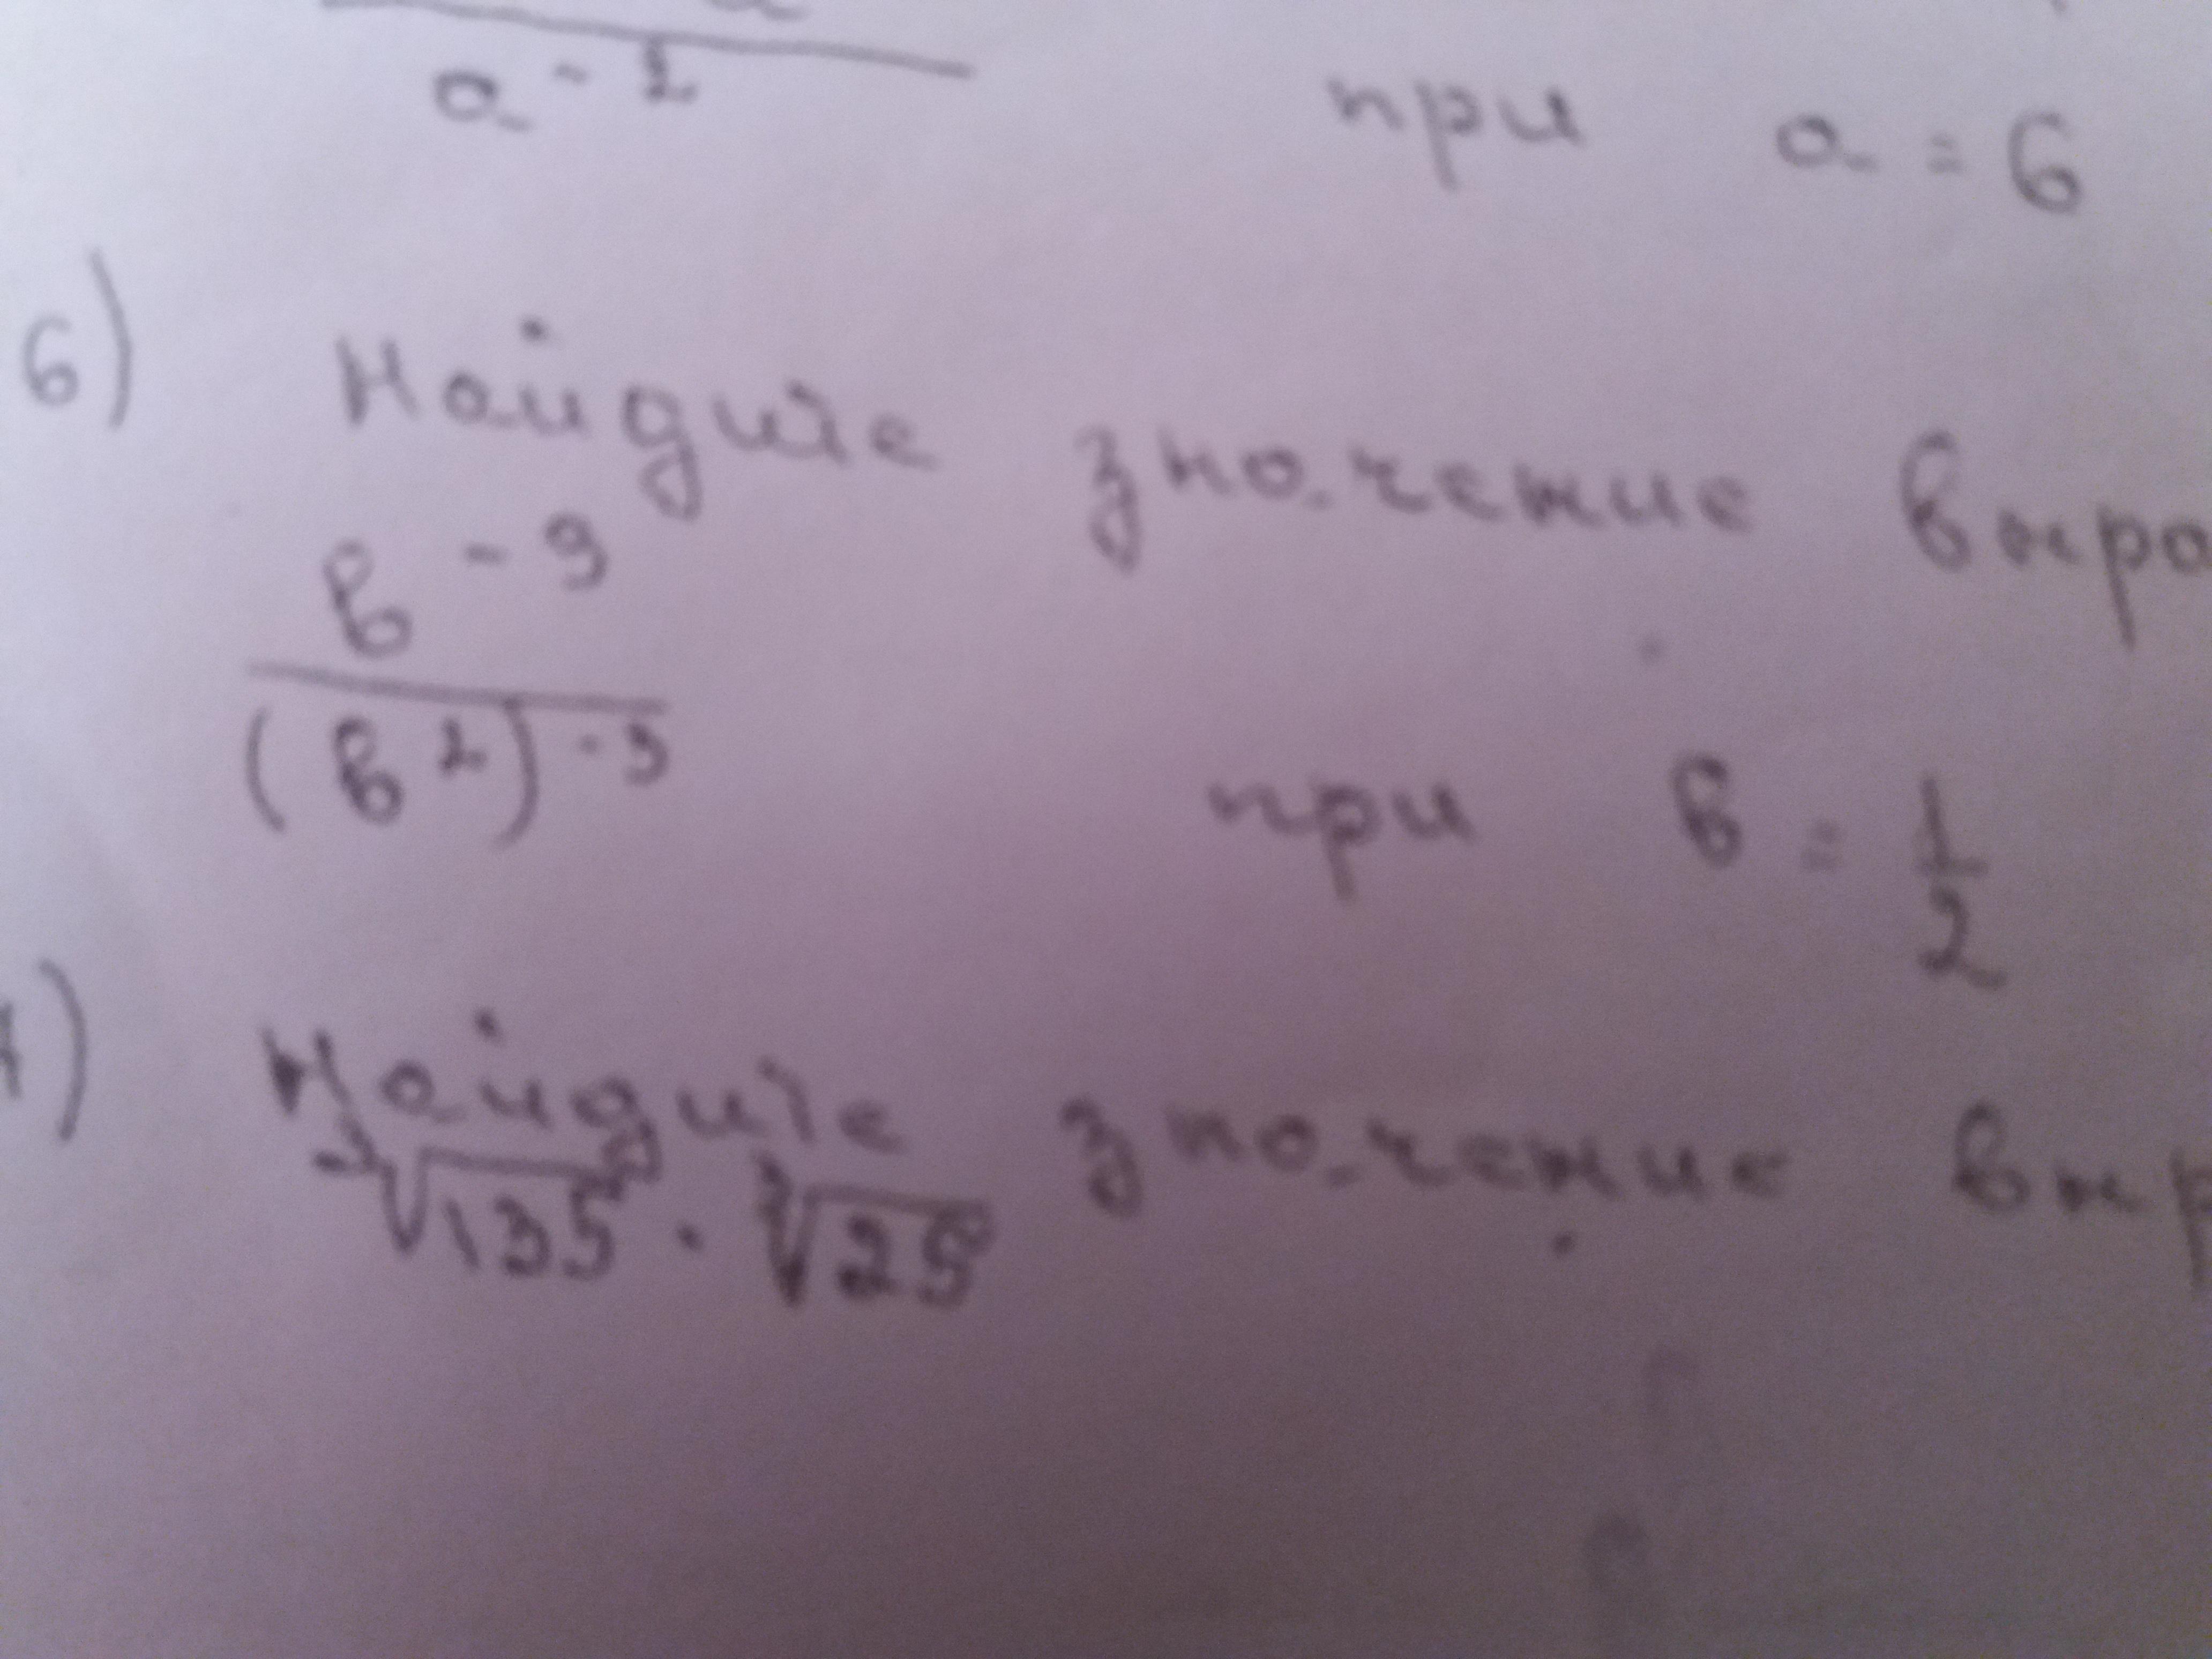 a⁻² при a = 6
6) Найдите значение выра
в⁻⁹
(в²)⁻³ при в = 1/2
) Найдите значение выр
³√135 · ³√25